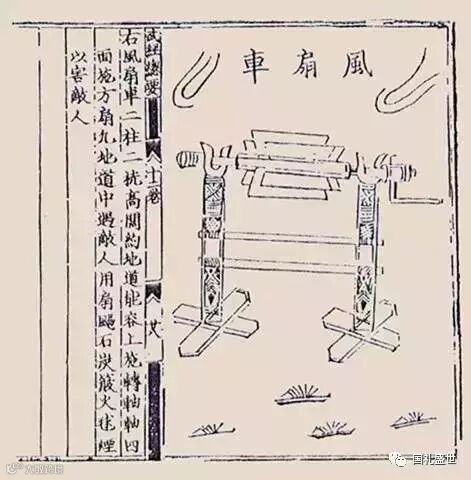 風扇車
武經總要
十二卷
右風扇車二柱二桄高闊約地道能容上施轉軸軸四
面施方扇凡地道中遇敵人用扇颺石灰簸火毬煙
以害敵人
国礼盛世